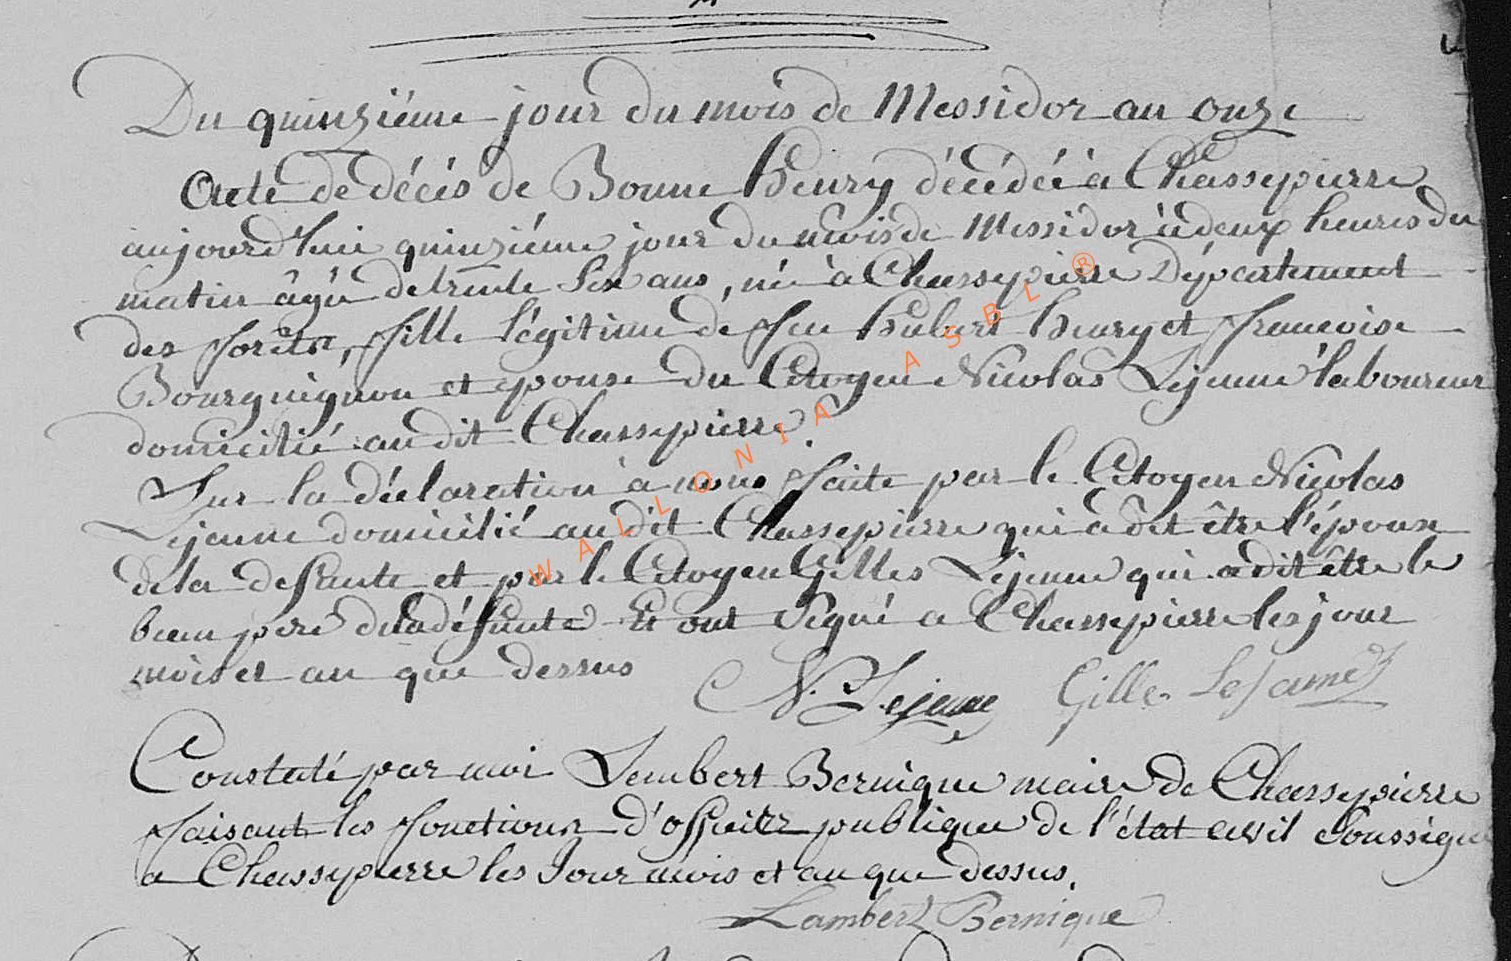 Du quinziéme jour du mois de Messidor an onze
Acte de décés de Bonne henry décédée à Chassepierre
aujourd'hui quinziéme jour du mois de Messidor à deux heures du
matin âgé de trente six ans, né à Chassepierre Département
des forêts, fille légitime de feu hubert henry et francoise
Bourguignon et epouse du Citoyen Nicolas Lejeune laboureur
domicilié au dit Chassepierre.
Sur la déclaration à nous faite par le Citoyen Nicolas
Lejeune domicilié au dit Chassepierre qui à dit être l'épouse
de la defunte et par le Citoyen Gilles Lejeune qui a dit être le
beau pere de la défunte Et ont Signé a Chassepierre les jour
mois et an que dessus
N. Lejeune Gille LeJeune
Constaté par moi Lambert Bernique maire de Chassepierre
faisant les fonctions d'officier publique de l'état civil Soussigné
a Chassepierre les Jour mois et an que dessus.
Lambert Bernique
WALLONIA ASBL ®